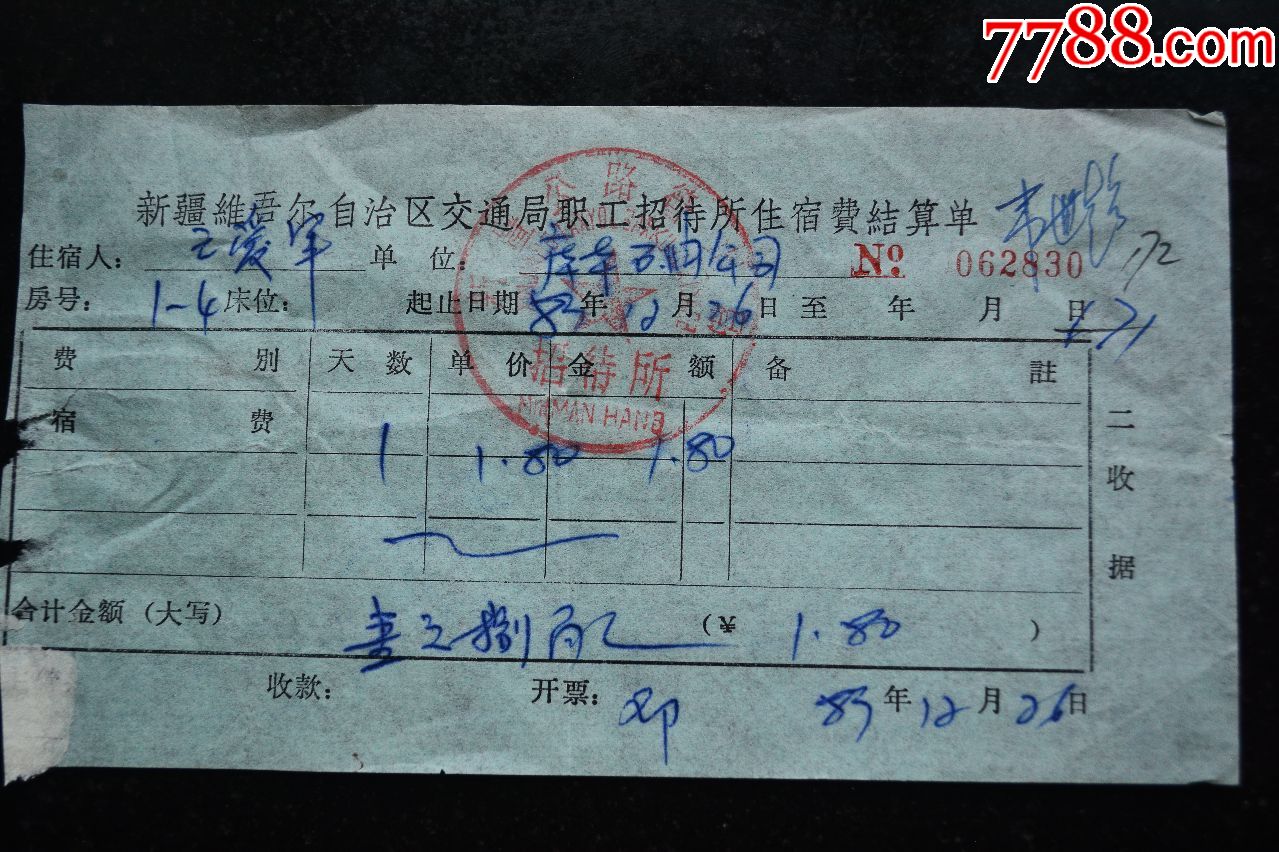 7788.com
公路
新疆維吾尔自治区交通局职工招待所住宿費結算单
住宿人： 王爱军 单 位： 库车五金公司 No 062830
房号： 1-4 床位： 起止日期 83年12月26日至 年 月 日
費 别 天 数 单 价 金 額 备 註
招待所
MIHMAN HANB
宿 費 1 1.80 1.80
二收据
合计金额（大写） 壹元捌角 （¥ 1.80 ）
收款： 开票： 邓 83年12月26日